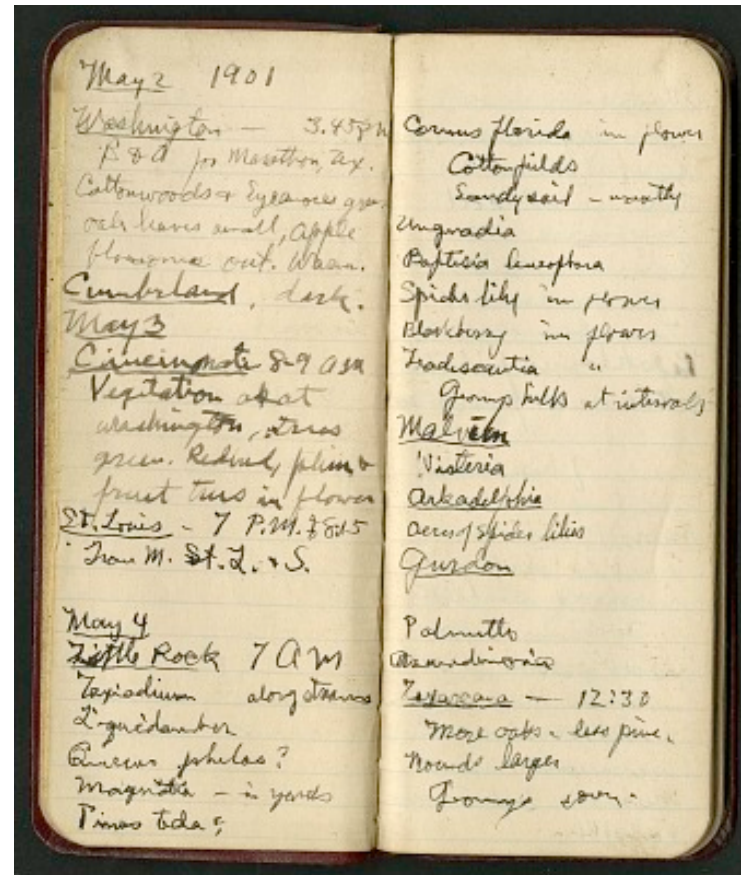 May 2 1901
Washington — 3.45 P M
B & O for Marathon, Tex.
Cottonwoods & Sycamores green
oak leaves small, apple
blossoms out. Warm.
Cumberland, dark.
May 3
Cincinnati 8-9 AM
Vegitation as at
Washington, trees
green. Redbud, plum &
fruit trees in flower
St. Louis - 7 P.M. & 8.15
Iron M. St. L. & S.
May 4
Little Rock 7 A M
Taxiodium along streams
Liquidamber
Quercus phelos?
Magnolia — in yards
Pinus teda?
Cornus florida in flower
Cottonfields
Sandy soil - mostly
Ungnadia
Baptisia leucophaea
Spider lily in flower
Blackberry in flower
Tradescantia "
Geomys hills at intervals
Malvern
Wisteria
Arkadelphia
acres of spider lilies
Gurdon
Palmetto
Texarkana — 12:30
More oaks - less pine.
Mounds larger
Geomys